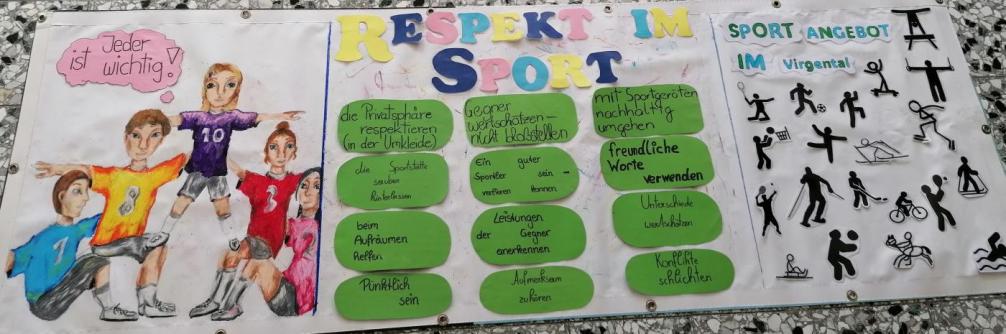 Jeder
ist wichtig!
7
8
10
3
RESPEKT IM
SPORT
die Privatsphäre
respektieren
(in der Umkleide)
die Sportstätte
sauber
hinterlassen
beim
Aufräumen
helfen
Pünktlich
sein
Gegner
wertschätzen-
nicht bloßstellen
Ein guter
Sportler sein -
verlieren können
Leistungen
der Gegner
anerkennen
Aufmerksam
zuhören
mit Sportgeräten
nachhaltig
umgehen
freundliche
Worte
verwenden
Unterschiede
wertschätzen
Konflikte
schlichten
SPORT ANGEBOT
IM Virgental